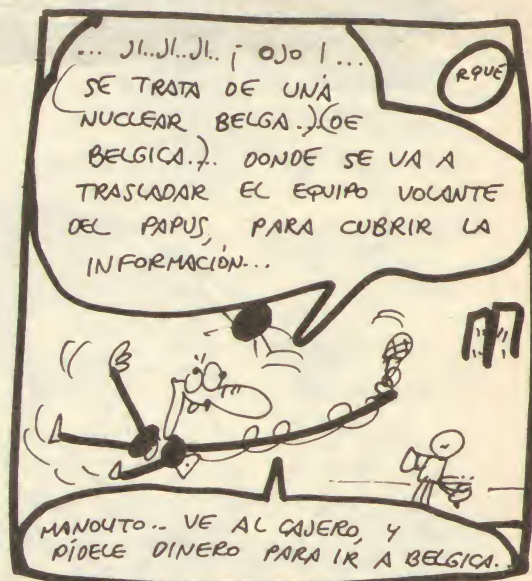 ... JI..JI..JI.. ¡ OJO ! ...
SE TRATA DE UNA
NUCLEAR BELGA.)(DE
BELGICA.).. DONDE SE VA A
TRASLADAR EL EQUIPO VOLANTE
DEL PAPUS, PARA CUBRIR LA
INFORMACIÓN...
RQUE
MANOLITO.. VE AL CAJERO, Y
PÍDELE DINERO PARA IR A BELGICA..